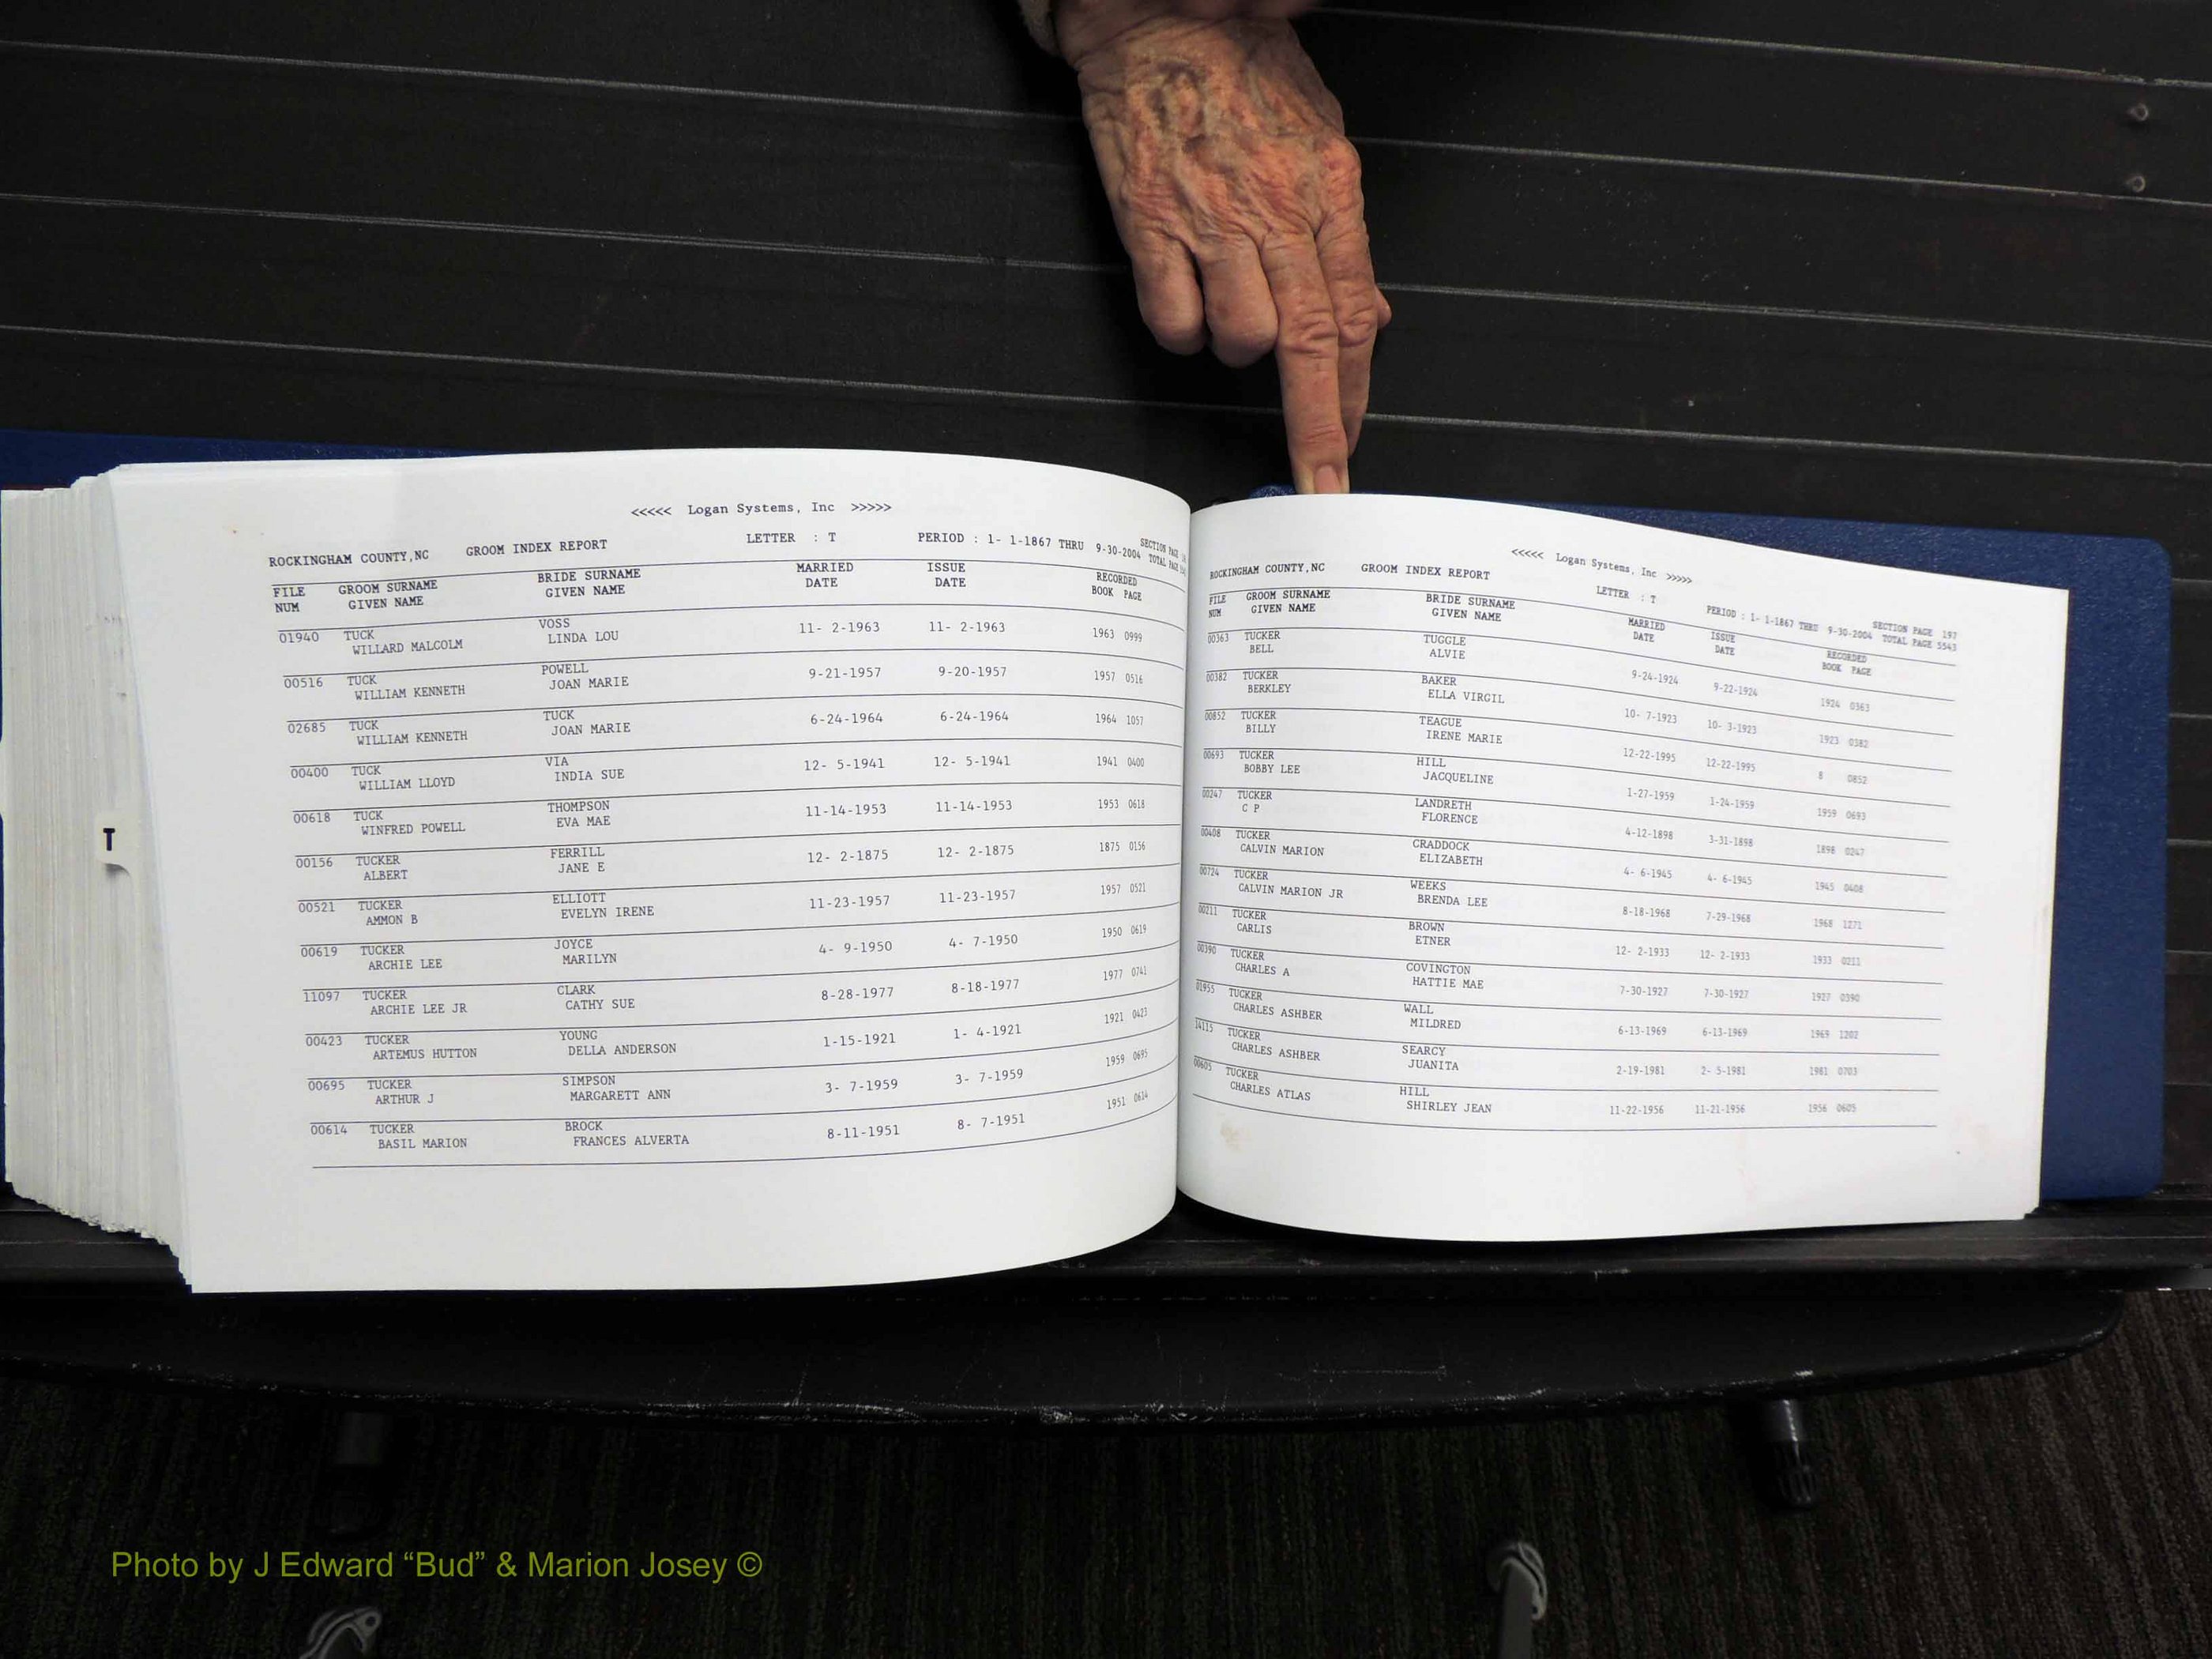 <<<<< Logan Systems, Inc >>>>>
ROCKINGHAM COUNTY,NC GROOM INDEX REPORT LETTER : T PERIOD : 1- 1-1867 THRU 9-30-2004 SECTION PAGE
TOTAL PAGE
FILE GROOM SURNAME BRIDE SURNAME MARRIED ISSUE RECORDED
NUM GIVEN NAME GIVEN NAME DATE DATE BOOK PAGE
01940 TUCK VOSS 11- 2-1963 11- 2-1963 1963 0999
WILLARD MALCOLM LINDA LOU
00516 TUCK POWELL 9-21-1957 9-20-1957 1957 0516
WILLIAM KENNETH JOAN MARIE
02685 TUCK TUCK 6-24-1964 6-24-1964 1964 1057
WILLIAM KENNETH JOAN MARIE
00400 TUCK VIA 12- 5-1941 12- 5-1941 1941 0400
WILLIAM LLOYD INDIA SUE
00618 TUCK THOMPSON 11-14-1953 11-14-1953 1953 0618
WINFRED POWELL EVA MAE
00156 TUCKER FERRILL 12- 2-1875 12- 2-1875 1875 0156
ALBERT JANE E
00521 TUCKER ELLIOTT 11-23-1957 11-23-1957 1957 0521
AMMON B EVELYN IRENE
00619 TUCKER JOYCE 4- 9-1950 4- 7-1950 1950 0619
ARCHIE LEE MARILYN
11097 TUCKER CLARK 8-28-1977 8-18-1977 1977 0741
ARCHIE LEE JR CATHY SUE
00423 TUCKER YOUNG 1-15-1921 1- 4-1921 1921 0423
ARTEMUS HUTTON DELLA ANDERSON
00695 TUCKER SIMPSON 3- 7-1959 3- 7-1959 1959 0695
ARTHUR J MARGARETT ANN
00614 TUCKER BROCK 8-11-1951 8- 7-1951 1951 0614
BASIL MARION FRANCES ALVERTA
T
<<<<< Logan Systems, Inc >>>>>
ROCKINGHAM COUNTY,NC GROOM INDEX REPORT LETTER : T PERIOD : 1- 1-1867 THRU 9-30-2004 SECTION PAGE 197
TOTAL PAGE 5543
FILE GROOM SURNAME BRIDE SURNAME MARRIED ISSUE RECORDED
NUM GIVEN NAME GIVEN NAME DATE DATE BOOK PAGE
00363 TUCKER TUGGLE 9-24-1924 9-22-1924 1924 0363
BELL ALVIE
00382 TUCKER BAKER 10- 7-1923 10- 3-1923 1923 0382
BERKLEY ELLA VIRGIL
00852 TUCKER TEAGUE 12-22-1995 12-22-1995 8 0852
BILLY IRENE MARIE
00693 TUCKER HILL 1-27-1959 1-24-1959 1959 0693
BOBBY LEE JACQUELINE
00247 TUCKER LANDRETH 4-12-1898 3-31-1898 1898 0247
C P FLORENCE
00408 TUCKER CRADDOCK 4- 6-1945 4- 6-1945 1945 0408
CALVIN MARION ELIZABETH
00724 TUCKER WEEKS 8-18-1968 7-29-1968 1968 1271
CALVIN MARION JR BRENDA LEE
00211 TUCKER BROWN 12- 2-1933 12- 2-1933 1933 0211
CARLIS ETNER
00390 TUCKER COVINGTON 7-30-1927 7-30-1927 1927 0390
CHARLES A HATTIE MAE
01955 TUCKER WALL 6-13-1969 6-13-1969 1969 1202
CHARLES ASHBER MILDRED
14115 TUCKER SEARCY 2-19-1981 2- 5-1981 1981 0703
CHARLES ASHBER JUANITA
00605 TUCKER HILL 11-22-1956 11-21-1956 1956 0605
CHARLES ATLAS SHIRLEY JEAN
Photo by J Edward “Bud” & Marion Josey ©